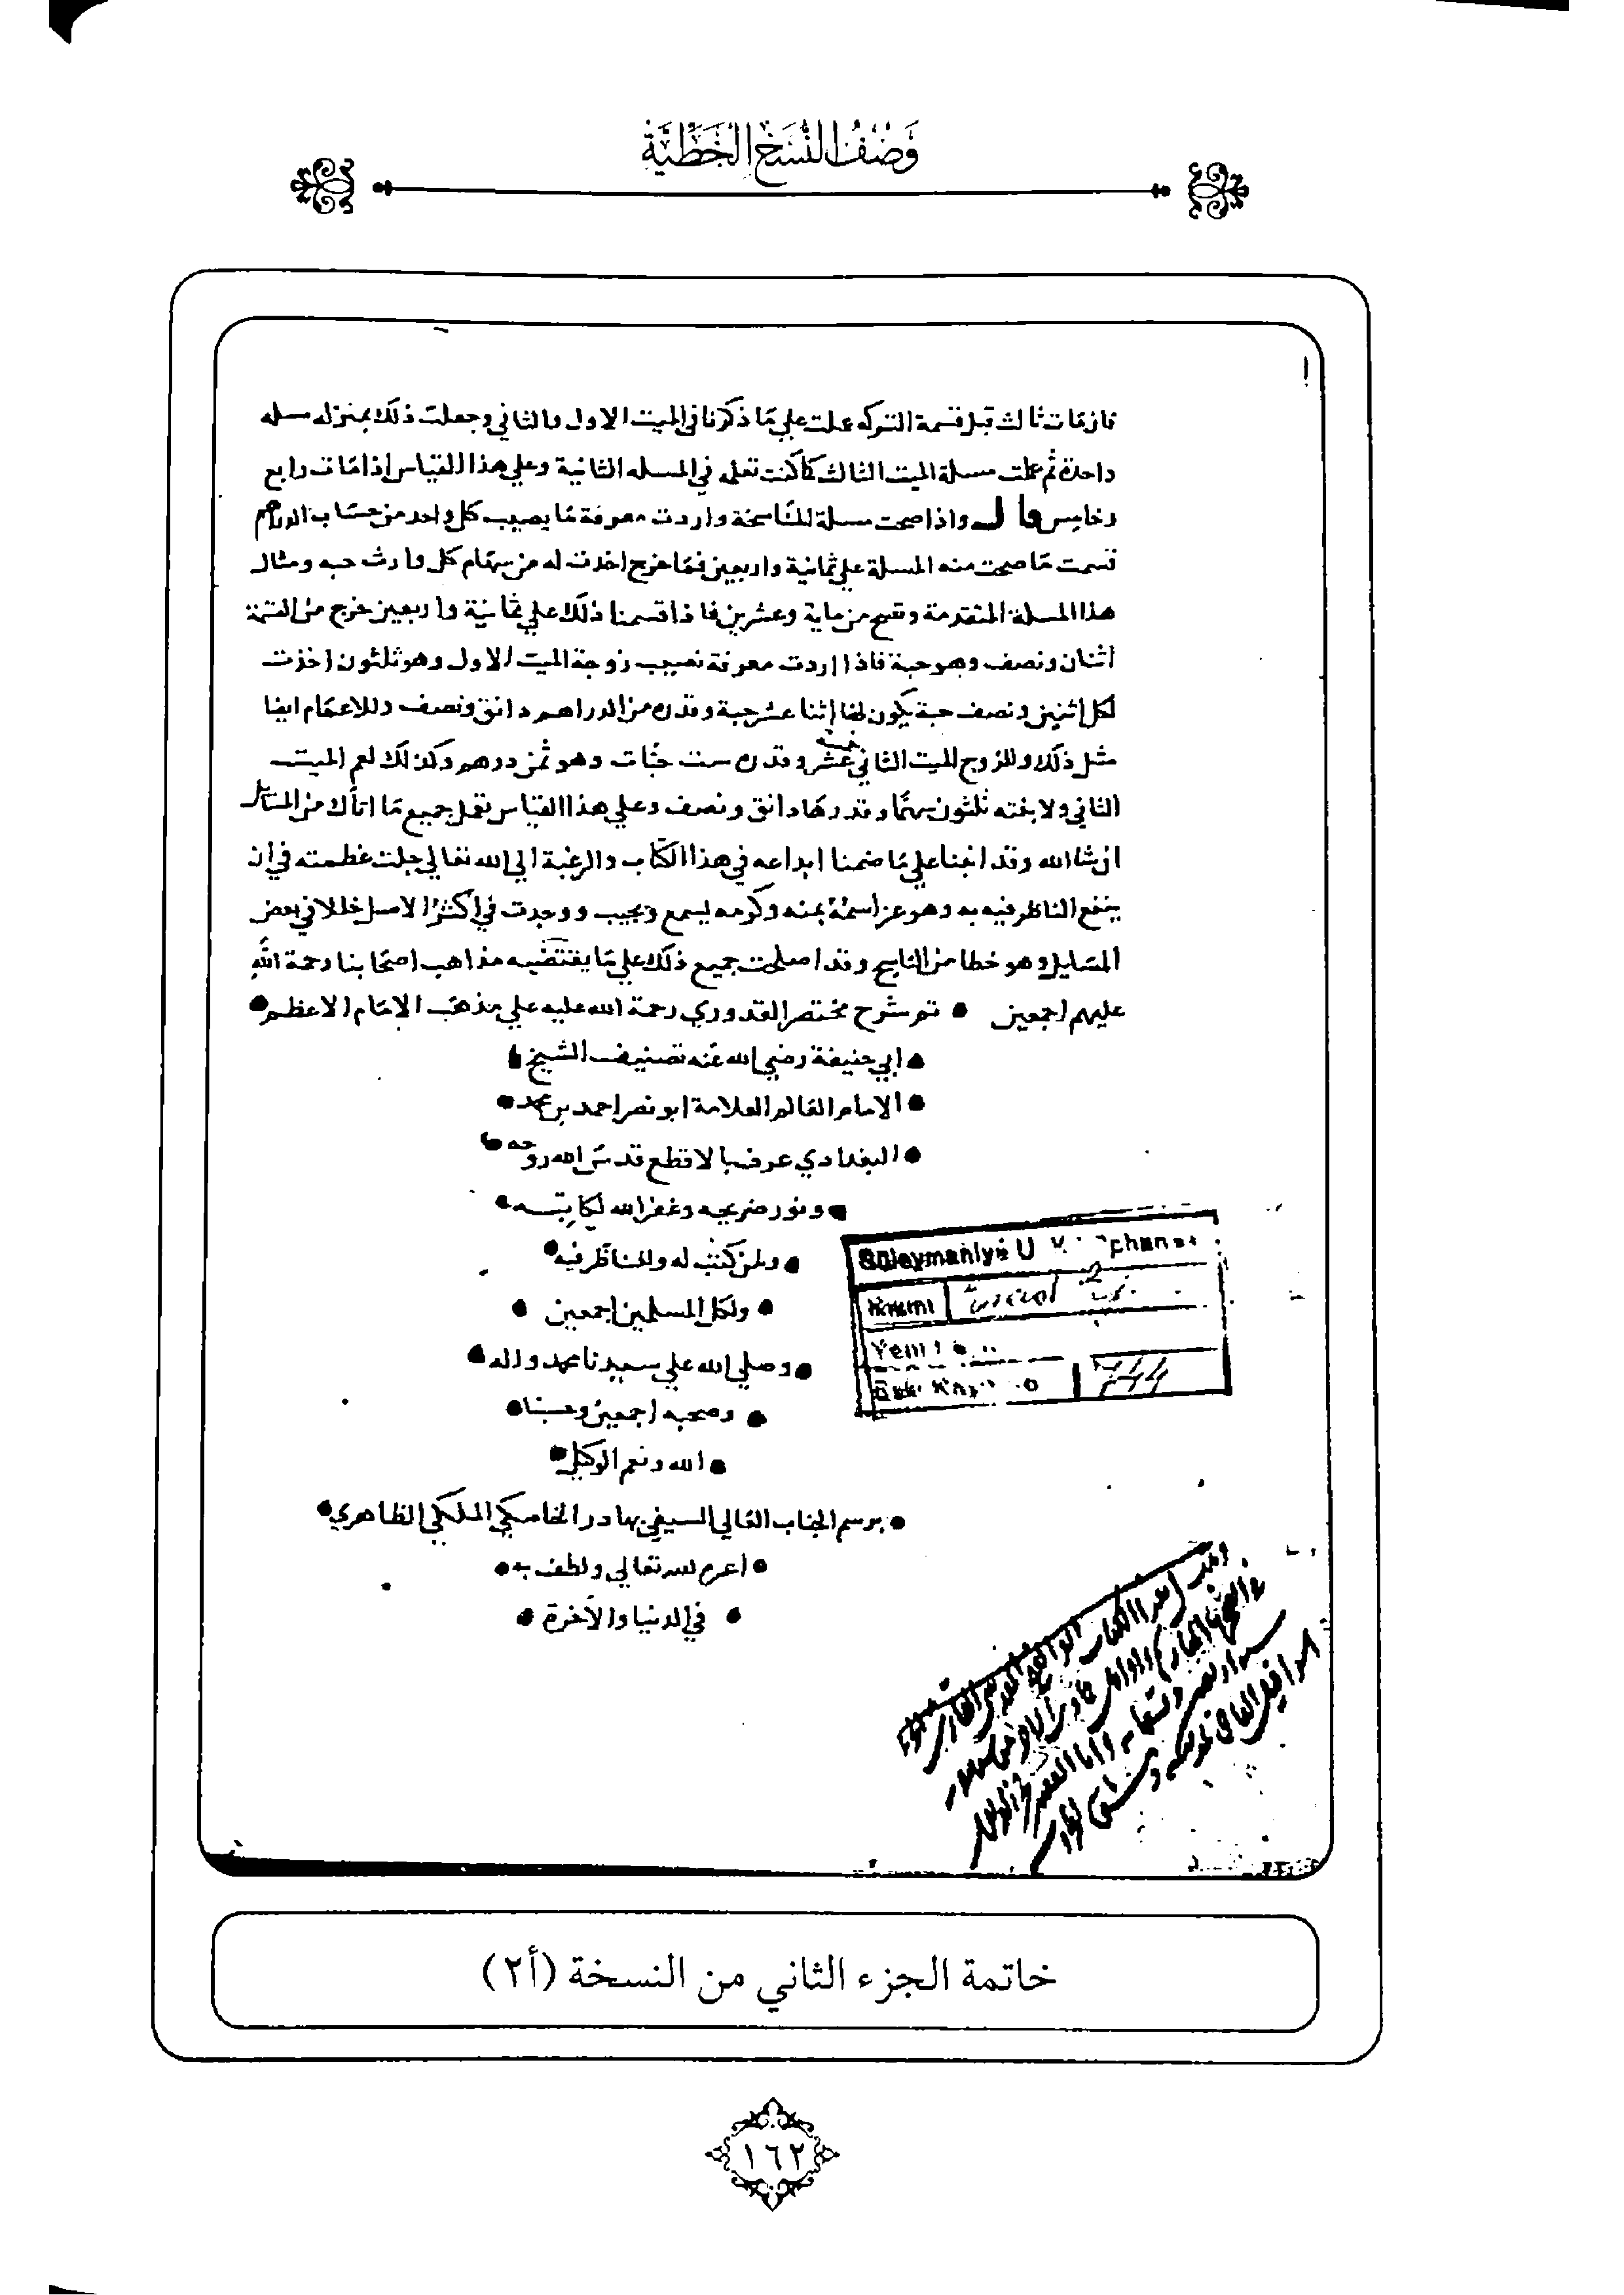 وَصْفُ النُّسَخِ الخَطِّيَّةِ
فان مات ثالث قبل قسمة التركه عملت علي ما ذكرنا في الميت الاول والثاني وجعلت ذلك بمنزله مسله
واحدة ثم عملت مسلة الميت الثالث كما كنت تعمله في المسله الثانية وعلي هذا القياس اذا مات رابع
وخامس قال واذا صحت مسلة المناسخة واردت معرفة ما يصيب كل واحد من حساب الدراهم
قسمت ما صحت منه المسلة علي ثمانية واربعين فما خرج اخذت له من سهام كل وارث حبه ومثال
هذا المسلة المتقدمة وتصح من ماية وعشرين فاذا قسمنا ذلك علي ثمانية واربعين خرج من القسمة
اثنان ونصف وهو حبة فاذا اردت معرفة نصيب زوجة الميت الاول وهو ثلثون اخذت
لكل اثنين ونصف حبة يكون لها اثنا عشر حبة وقدره من الدراهم دانق ونصف وللاعمام ايضا
مثل ذلك وللزوج الميت الثاني خمسة عشر وقدره ست حبات وهو ثمن درهم وكذلك لعم الميت
الثاني ولابنته ثلثون سهما وقدرها دانق ونصف وعلي هذا القياس تعمل جميع ما اتاك من المسائل
ان شا الله وقد اتينا علي ما ضمنا ايداعه في هذا الكتاب والرغبة الي الله تعالي جلت عظمته في ان
ينفع الناظر فيه به وهو عز اسمه بمنه وكرمه يسمع ويجيب ووجدت في اكثر الاصل خللا في بعض
المسايل وهو خطا من الناسخ وقد اصلحت جميع ذلك علي ما يقتضيه مذاهب اصحابنا رحمة الله
عليهم اجمعين • تم شرح مختصر القدوري رحمة الله عليه علي مذهب الامام الاعظم •
• ابي حنيفة رضي الله عنه تصنيف الشيخ •
• الامام العالم العلامة ابو نصر احمد بن محمد •
• البغدادي عرف بالاقطع قدس الله روحه •
• ونور ضريحه وغفر الله لكاتبه •
• ولمن كتب له وللناظر فيه •
• ولكل المسلمين اجمعين •
• وصلي الله علي سيدنا محمد واله •
• وصحبه اجمعين وحسبنا •
• الله ونعم الوكيل •
• برسم الجناب العالي السيفي بهادر الخاصكي الملكي الظاهري •
• اعزه الله تعالي ولطف به •
• في الدنيا والآخرة •
Süleymaniye U
Kısmı
Yeni
744
خاتمة الجزء الثاني من النسخة (أ٢)
١٦٢